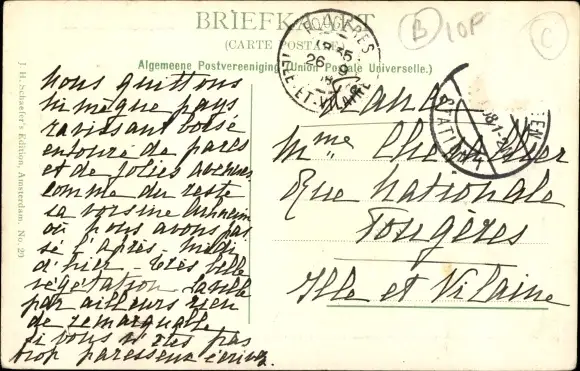 BRIEFKAART
(CARTE POSTALE)
Algemeene Postvereeniging (Union Postale Universelle.)
B
10F
C
FOUGÈRES
26
ILLE-ET-VILAINE
STATION
J. H. Schaefer's Edition, Amsterdam. No. 29
Nous quittons
Nimègue pays
ravissant boisé
entouré de parcs
et de jolies avenues
comme du reste
sa voisine Arnheim
où nous avons passé
l'après-midi
d'hier. Très belle
végétation. la ville
par ailleurs rien
de remarquable
si vous n'êtes pas
trop paresseux écrivez.
Mme
Rue Nationale
Fougères
Ille et Vilaine